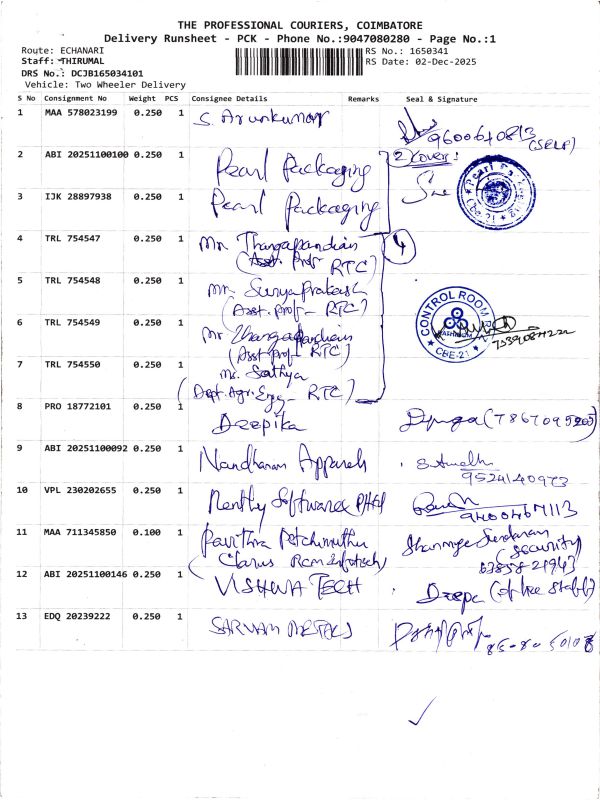 THE PROFESSIONAL COURIERS, COIMBATORE
Delivery Runsheet - PCK - Phone No.:9047080280 - Page No.:1
Route: ECHANARI
RS No.: 1650341
Staff: THIRUMAL
RS Date: 02-Dec-2025
DRS No.: DCJB165034101
Vehicle: Two Wheeler Delivery
S No Consignment No Weight PCS Consignee Details Remarks Seal & Signature
1 MAA 578023199 0.250 1 S. Arunkumar
9600640813
(SELF)
2 ABI 20251100100 0.250 1 Pearl Packaging 2 covers
3 IJK 28897938 0.250 1 Pearl Packaging
4 TRL 754547 0.250 1 Mr. Thangapandian 4
(Asst. Prof RTC)
5 TRL 754548 0.250 1 Mr. Surya Prakash
(Asst. Prof - RTC)
CONTROL ROOM
CBE-21
6 TRL 754549 0.250 1 Mr Thangapandian
(Asst prof - RTC)
7 TRL 754550 0.250 1 Ms. Sathya
(Dept. Agri. Engg - RTC)
8 PRO 18772101 0.250 1 Deepika
9 ABI 20251100092 0.250 1 Nandhanam Apparels
10 VPL 230202655 0.250 1 Software
9400467113
11 MAA 711345850 0.100 1 Pavithra Petchimuthu
(Clarus Rcm Infotech)
(Security)
12 ABI 20251100146 0.250 1 VISHWA TECH
(office staff)
13 EDQ 20239222 0.250 1 SARVAM METALS